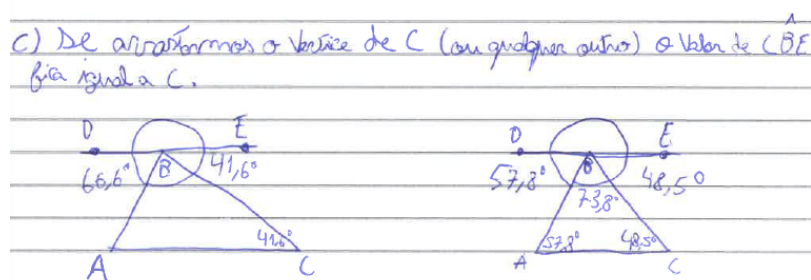 c) Se arrastarmos o vértice de C (ou qualquer outro) o valor de CB̂E
fica igual a C.
D E
66,6° B 41,6°
41,6°
A C
D E
57,8° B 48,5°
73,8°
57,8° 48,5°
A C